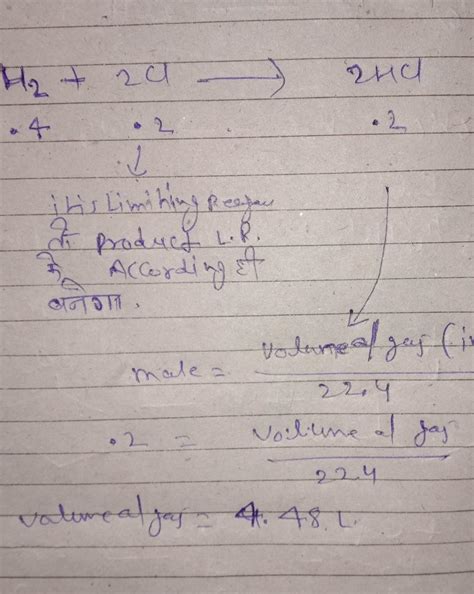 H₂ + 2Cl ⟶ 2HCl
.4 .2 .2
it is Limiting
तो Product L.R.
के According ही
बनेगा.
mole = volume of gas (in
22.4
.2 = Volume of gas
22.4
volume of gas = 4.48 L.